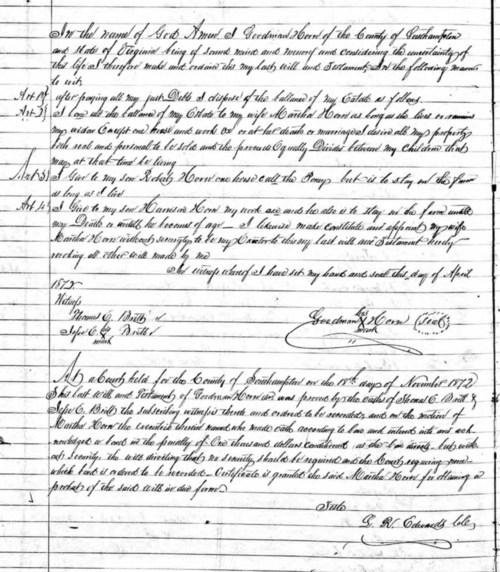 In the name of God Amen I Goodman Horn of the County of Southampton
and State of Virginia being of sound mind and memory and considering the uncertainty of
this life I therefore make and ordained this my last will and Testament In the following manner
to wit
Art 1st after paying all my just Debts I dispose of the ballance of my Estate as follows
Art 2d I loan all the ballance of my Estate to my wife Martha Horn as long as she lives or remains
my widow Except one horse and work ox or at her death or marriage I desire all my property
both real and personal to be sold and the proceeds Equally Divided between my children that
may at that time be living
Art 3d I Give to my son Robert Horn one horse call the Poney but is to stay on the farm
as long as I live
Art 4th I Give to my son Harrison Horn my work and he also is to stay on the farm untill
my Death or untill he becomes of age I likewise make constitute and appoint my wife
Martha Horn without security to be my to this my last will and Testament hereby
revoking all other will made by me
In witness whereof I have set my hand and seal this day of April
1872
Witness
Thomas C. Britt
Jesse C. his mark Britt
Goodman his mark Horn (Seal)
At a Court held for the County of Southampton on the 18th day of November 1872
This last Will and Testament of Goodman Horn decd was proved by the oaths of Thomas C. Britt &
Jesse C. Britt the subscribing witnesses thereto and ordered to be recorded, and on the motion of
Martha Horn the Executrix therein named who made oath according to law and entered into and ack
nowledged a bond in the penalty of One thousand dollars conditioned as the law directs but with
out security the will directing that no security should be required and the Court requiring none
which bond is ordered to be recorded. Certificate is granted the said Martha Horn for obtaining a
probat of the said Will in due form
Teste
Edwards